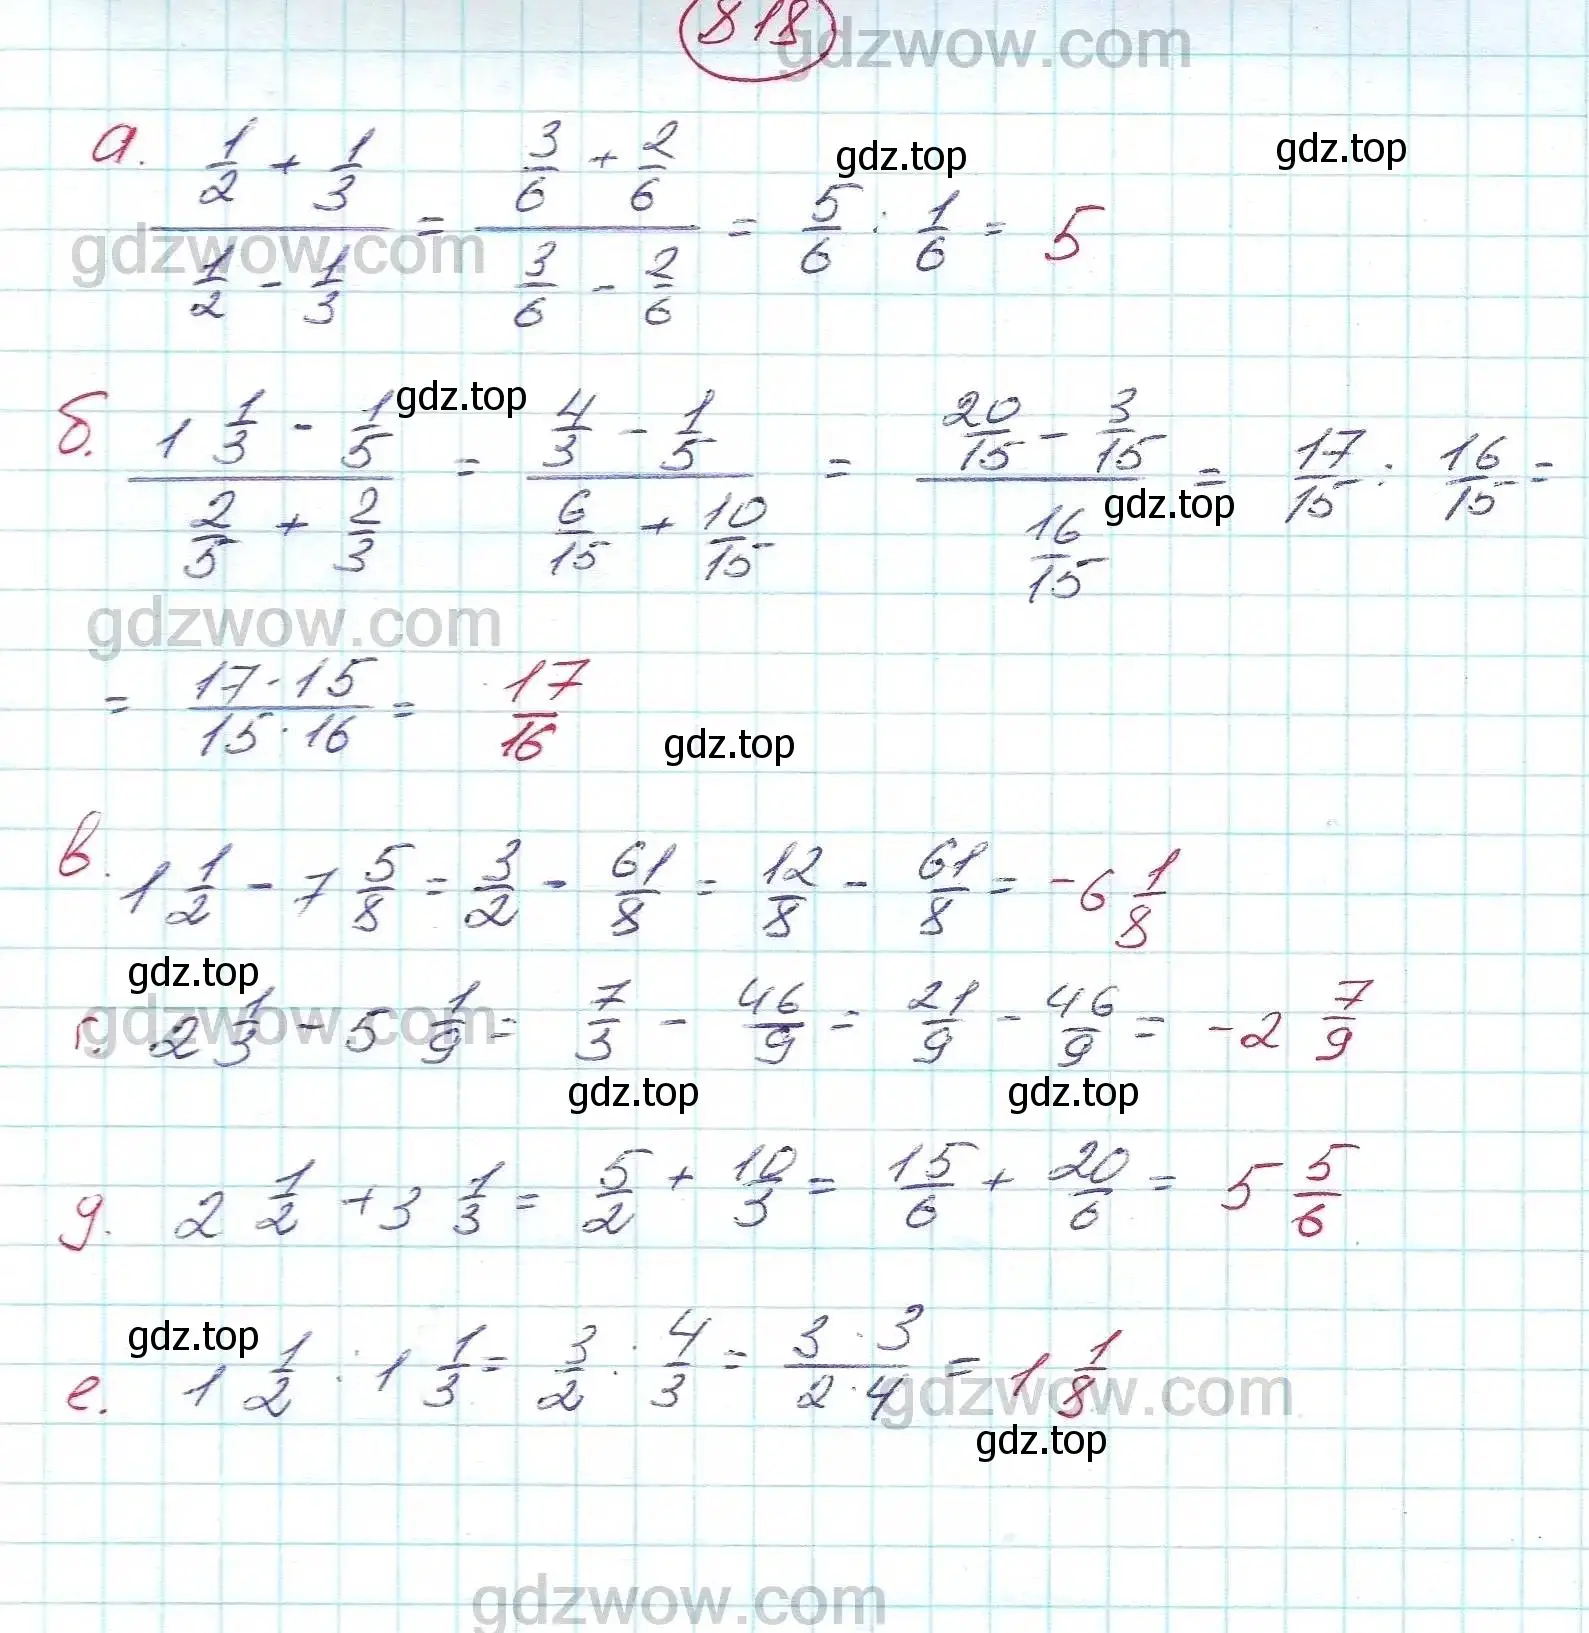 818
gdzwow.com
а. (1/2 + 1/3)/(1/2 - 1/3) = (3/6 + 2/6)/(3/6 - 2/6) = 5/6 : 1/6 = 5
gdz.top
gdz.top
gdzwow.com
б. (1 1/3 - 1/5)/(2/5 + 2/3) = (4/3 - 1/5)/(6/15 + 10/15) = (20/15 - 3/15)/(16/15) = 17/15 : 16/15 =
gdz.top
gdz.top
gdzwow.com
= (17 · 15)/(15 · 16) = 17/16
gdz.top
в. 1 1/2 - 7 5/8 = 3/2 - 61/8 = 12/8 - 61/8 = -6 1/8
gdz.top
gdzwow.com
г. 2 1/3 - 5 1/9 = 7/3 - 46/9 = 21/9 - 46/9 = -2 7/9
gdz.top
gdz.top
д. 2 1/2 + 3 1/3 = 5/2 + 10/3 = 15/6 + 20/6 = 5 5/6
gdz.top
е. 1 1/2 : 1 1/3 = 3/2 : 4/3 = (3 · 3)/(2 · 4) = 1 1/8
gdzwow.com
gdz.top
gdzwow.com